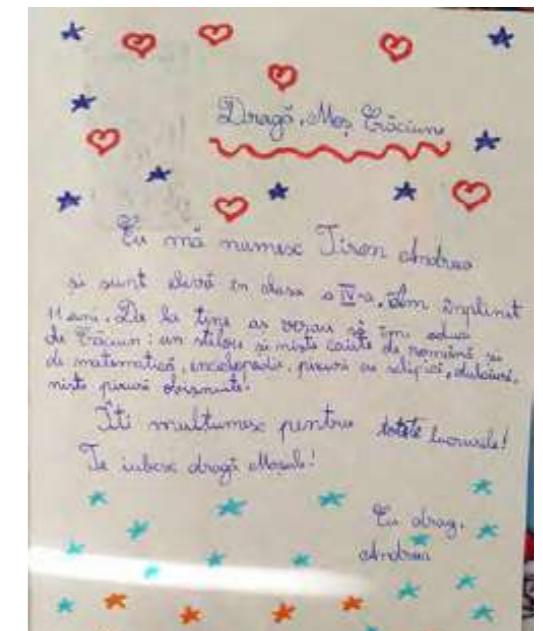 Dragă, Moș Crăciun
Eu mă numesc Tiron Andreea
și sunt elevă în clasa a IV-a. Am împlinit
11 ani. De la tine aș vrea să îmi aduci
de Crăciun: un stilou și niște caiete de română și
de matematică, enciclopedie, pixuri cu sclipici, dulciuri,
niște pixuri obișnuite.
Îți mulțumesc pentru toate lucrurile!
Te iubesc dragă Moșule!
Cu drag,
Andreea